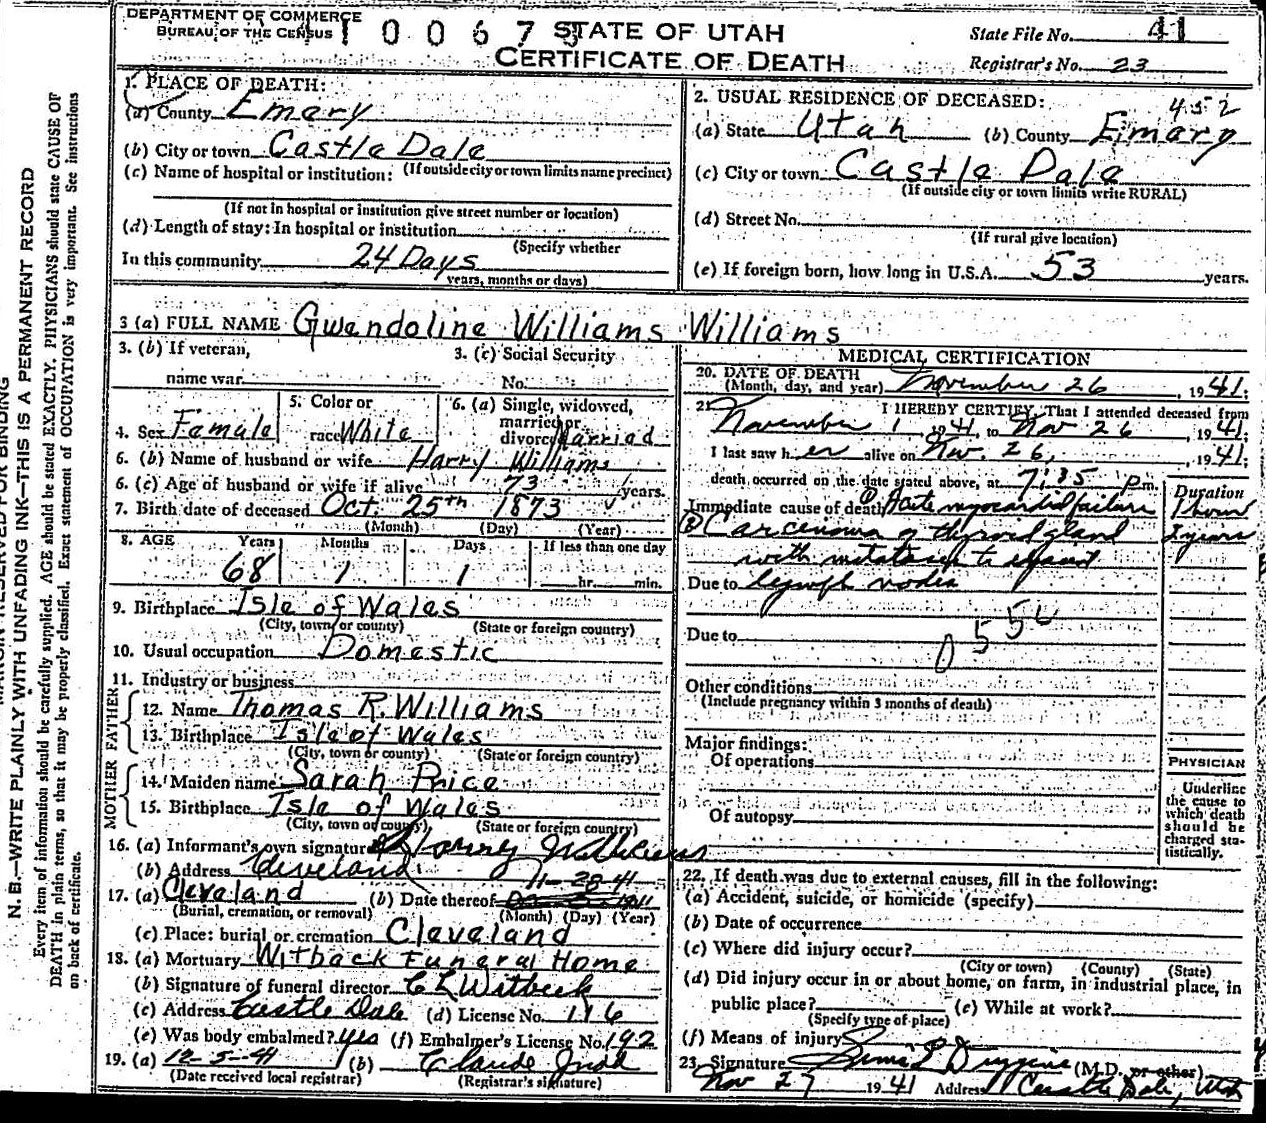 DEPARTMENT OF COMMERCE
BUREAU OF THE CENSUS
1 0 0 6 7
STATE OF UTAH
CERTIFICATE OF DEATH
State File No. 41
Registrar's No. 23
1. PLACE OF DEATH:
(a) County Emery
(b) City or town Castle Dale
(If outside city or town limits name precinct)
(c) Name of hospital or institution:
(If not in hospital or institution give street number or location)
(d) Length of stay: In hospital or institution
(Specify whether
In this community 24 Days
years, months or days)
2. USUAL RESIDENCE OF DECEASED:
452
(a) State Utah (b) County Emery
(c) City or town Castle Dale
(If outside city or town limits write RURAL)
(d) Street No.
(If rural give location)
(e) If foreign born, how long in U.S.A. 53 years.
3 (a) FULL NAME Gwendoline Williams Williams
3. (b) If veteran,
name war
3. (c) Social Security
No.
4. Sex Female
5. Color or
race White
6. (a) Single, widowed,
married or
divorced Married
6. (b) Name of husband or wife Harry Williams
6. (c) Age of husband or wife if alive 73 years.
7. Birth date of deceased Oct. 25th 1873
(Month) (Day) (Year)
8. AGE Years Months Days If less than one day
68 1 1 hr. min.
9. Birthplace Isle of Wales
(City, town or county) (State or foreign country)
10. Usual occupation Domestic
11. Industry or business
FATHER
12. Name Thomas R. Williams
13. Birthplace Isle of Wales
(City, town or county) (State or foreign country)
MOTHER
14. Maiden name Sarah Price
15. Birthplace Isle of Wales
(City, town or county) (State or foreign country)
16. (a) Informant's own signature Harry Williams
(b) Address Cleveland
17. (a) Cleveland (b) Date thereof 11-28-41
(Burial, cremation, or removal) (Month) (Day) (Year)
(c) Place: burial or cremation Cleveland
18. (a) Mortuary Witback Funeral Home
(b) Signature of funeral director C L Witbeck
(c) Address Castle Dale (d) License No. 116
(e) Was body embalmed? yes (f) Embalmer's License No. 192
19. (a) 12-5-41 (b) Claude
(Date received local registrar) (Registrar's signature)
MEDICAL CERTIFICATION
20. DATE OF DEATH
(Month, day, and year) November 26, 1941;
21. I HEREBY CERTIFY, That I attended deceased from
November 1, 1941, to Nov 26, 1941;
I last saw her alive on Nov. 26, 1941;
death occurred on the date stated above, at 7:35 P.m.
Duration
Immediate cause of death (1) Acute myocardial failure 1 hour
(2) Carcenoma of thyroid gland 2 years
with metatasis to
Due to lymph nodes
Due to
055
Other conditions
(Include pregnancy within 3 months of death)
Major findings:
Of operations
Of autopsy
PHYSICIAN
Underline
the cause to
which death
should be
charged sta-
tistically.
22. If death was due to external causes, fill in the following:
(a) Accident, suicide, or homicide (specify)
(b) Date of occurrence
(c) Where did injury occur?
(City or town) (County) (State)
(d) Did injury occur in or about home, on farm, in industrial place, in
public place? (e) While at work?
(Specify type of place)
(f) Means of injury
23. Signature (M.D. or other)
Nov 27 1941 Address Castle Dale, Utah
N. B.—WRITE PLAINLY WITH UNFADING INK—THIS IS A PERMANENT RECORD
Every item of information should be carefully supplied. AGE should be stated EXACTLY. PHYSICIANS should state CAUSE OF
DEATH in plain terms, so that it may be properly classified. Exact statement of OCCUPATION is very important. See instructions
on back of certificate.